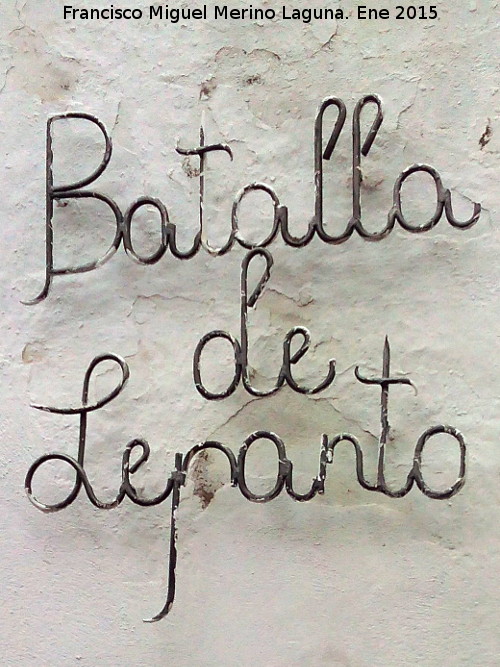 Francisco Miguel Merino Laguna. Ene 2015
Batalla
de
Lepanto